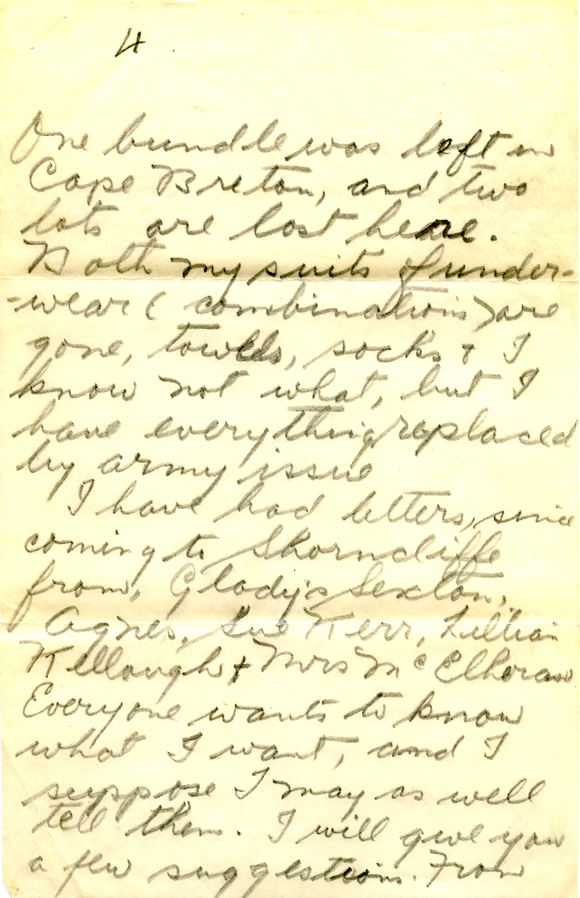 4
One bundle was left in
Cape Breton, and two
lots are lost here.
Both my suits of under-
-wear (combinations) are
gone, towells, socks & I
know not what, but I
have everything replaced
by army issue
I have had letters, since
coming to Shorncliffe
from, Gladys Sexton,
Agnes, Sue Kerr, Lillian
Kellough & Mrs McElheran
Everyone wants to know
what I want, and I
suppose I may as well
tell them. I will give you
a few suggestions. From